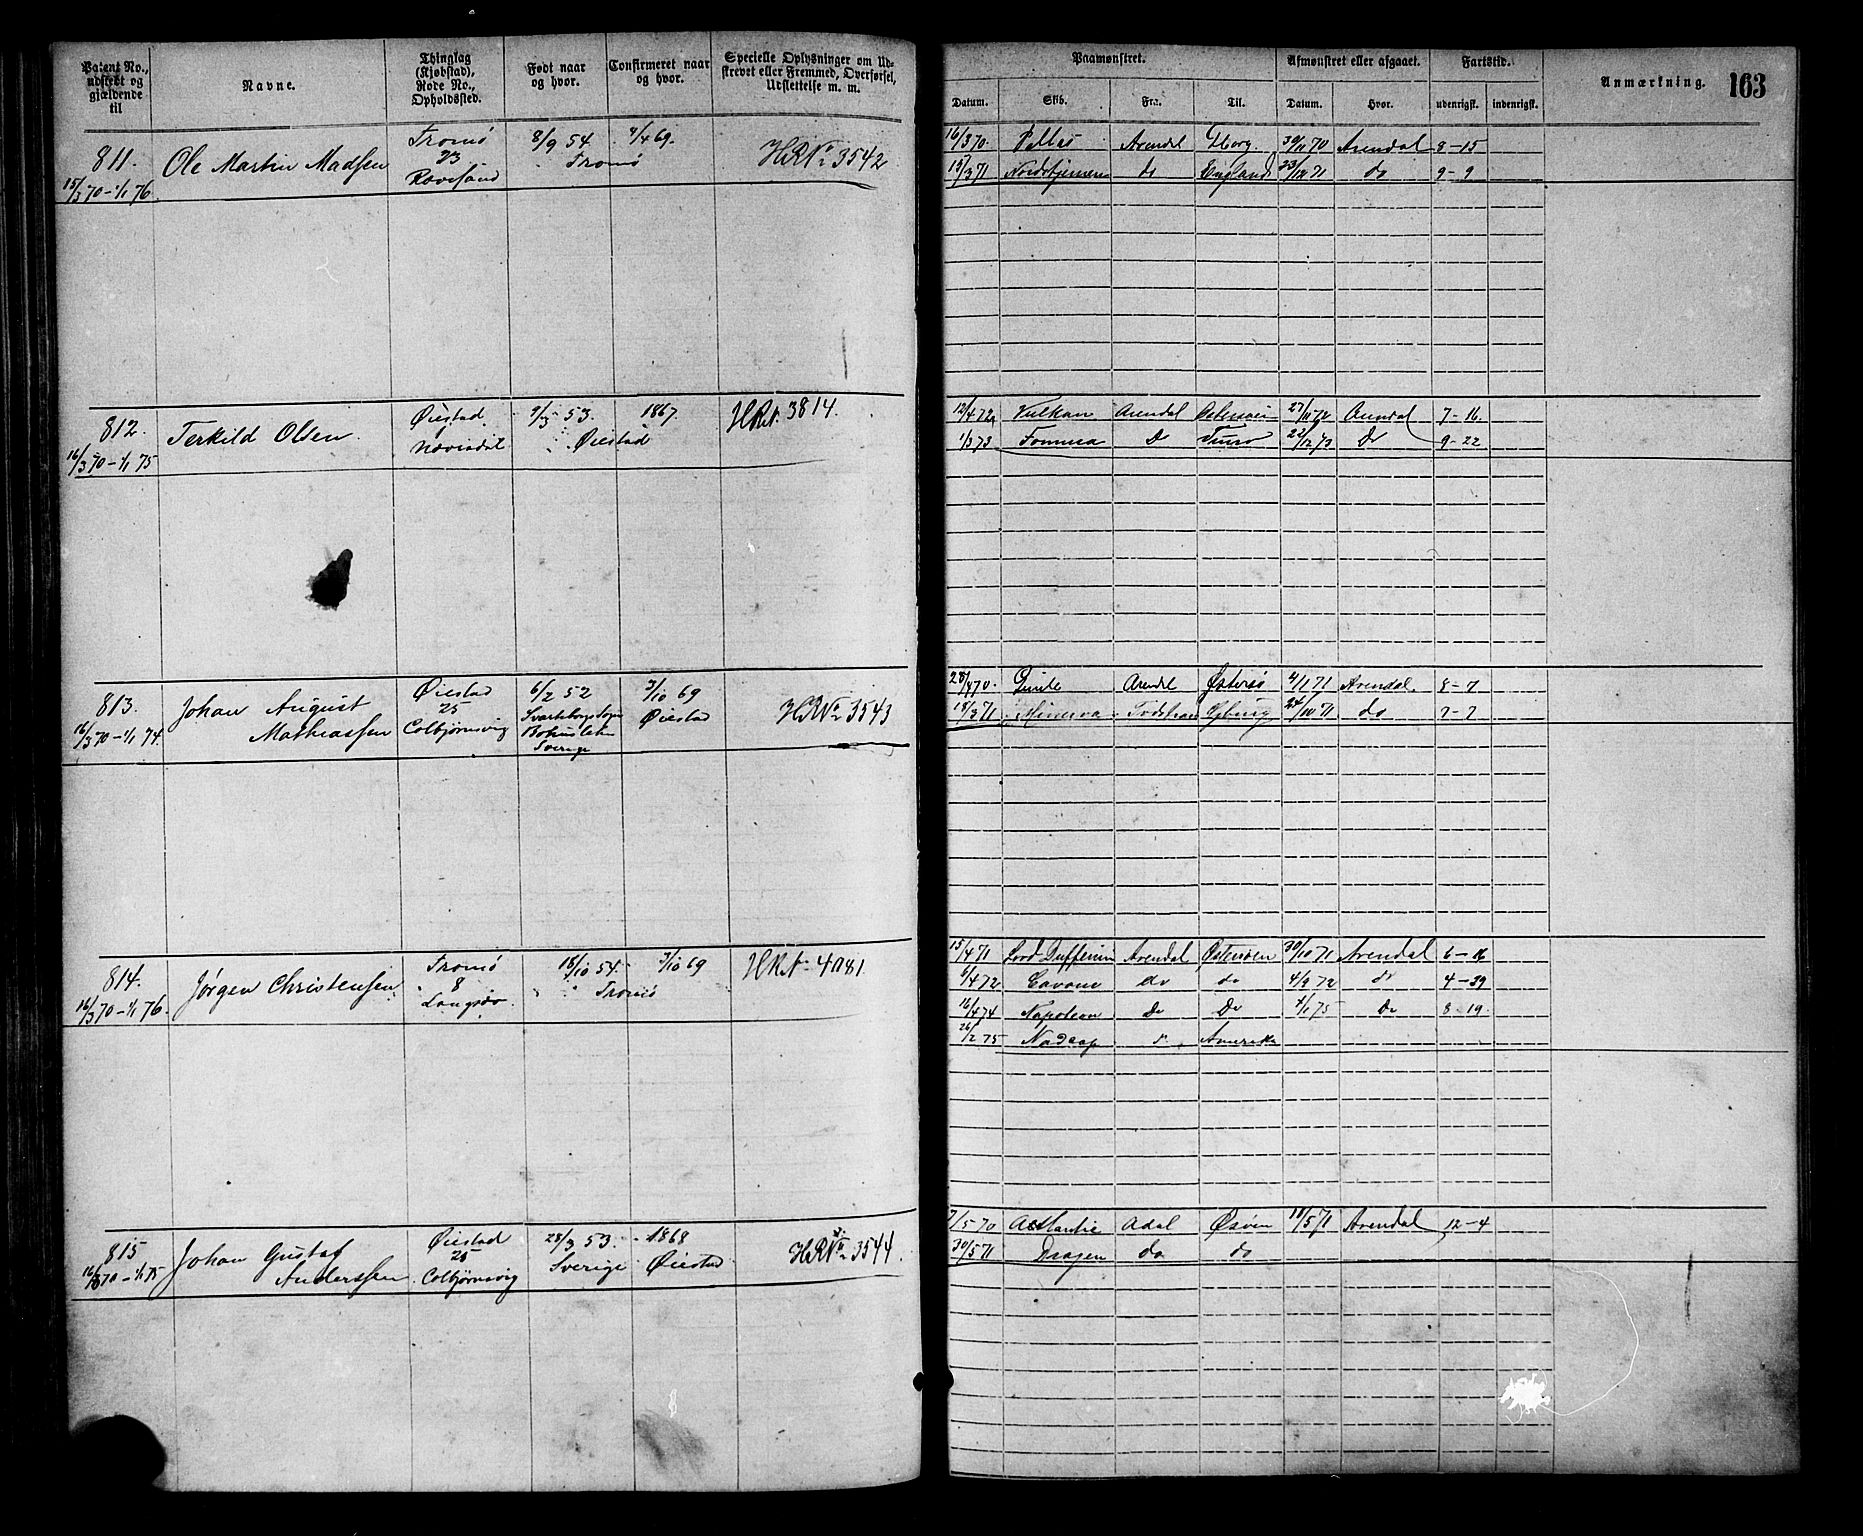 Patent No., udstedt og gjældende til
Navne.
Thinglag (Kjøbstad), Rode No., Opholdssted.
Født naar og hvor.
Confirmeret naar og hvor.
Specielle Oplysninger om Udskrevet eller Fremmed, Overførsel, Udslettelse m. m.
Paamønstret.
Afmønstret eller afgaaet.
Fartstid.
Anmærkning. 163
Datum. Skib. Fra. Til. Datum. Hvor. udenrigsk. indenrigsk.
811. Ole Martin Madsen Tromø 8/9 54 7/4 69. HRNo 3542
15/3 70 – 1/1 76 23 Tromø
Ravesand
16/3 70 Pallas Arendal 30/11 70 Arendal 8–15
15/3 71 Nordstjernen do England 23/12 71 do 9–9
812. Terkild Olsen Øiestad 9/3 53. 1867. HRN. 3814.
16/3 70 – 1/1 75 Øiestad
12/4 72 Vulkan Arendal 27/11 72 Arendal 7–16
1/3 73 Do 22/12 73 Do 9–22
813. Johan August Øiestad 6/2 52 3/10 69 HRNo 3543
16/3 70 – 1/1 74. Mathiassen 25 Øiestad
Colbjørnsvig
Sverige
28/4 70. Arendal Østersø 4/1 71 Arendal. 8–7
15/3 71 Minerva 24/10 71 do 7–7
814. Jørgen Christensen Tromø 18/10 54. 3/10 69 HRN. 4081
16/3 70 – 1/1 76. 8 Tromø
15/4 71 Lord Dufferin Arendal Østersøen 30/10 71 Arendal 6–16
6/4 72 do do 4/9 72 do 4–29
16/4 74 Napoleon Do Do 7/1 75 Do 8–19.
26/2 75 Amerika
815 Johan Gustaf Øiestad 28/3 53. 1868 HRNo 3544.
16/3 70 – 1/1 75 Anderssen 25 Sverige Øiestad
Colbjørnsvig
7/5 70 Atlantic Adal 18/5 71 Arendal 12–4
30/5 71 Dragen do do